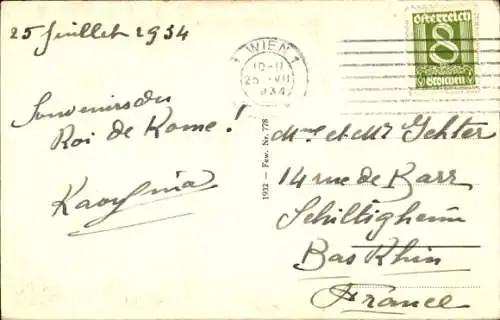 25 Juillet 1934
Souvenirs du
Roi de Rome !
1 WIEN 1
25 VII
934
Österreich
8
Groschen
1932 – Few. Nr. 778
Mme et Mr
14 rue de Barr
Schiltigheim
Bas Rhin
France